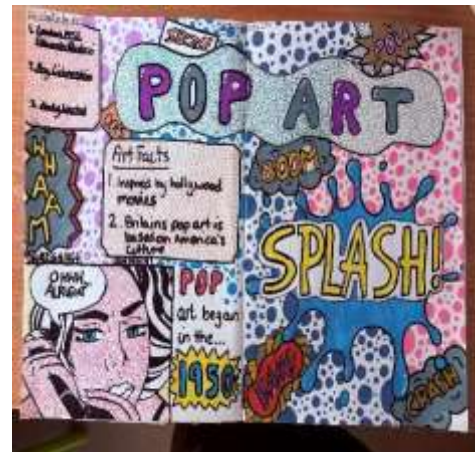 POP ART
POW!
2. Roy Lichtenstein
3. Andy Warhol
WHAAM
Art Facts
1. Inspired by hollywood
movies
2. Britains pop art is
based on America's
culture
BOOM
SPLASH!
OHHH...
ALRIGHT
POP
art began
in the...
1950
CRASH